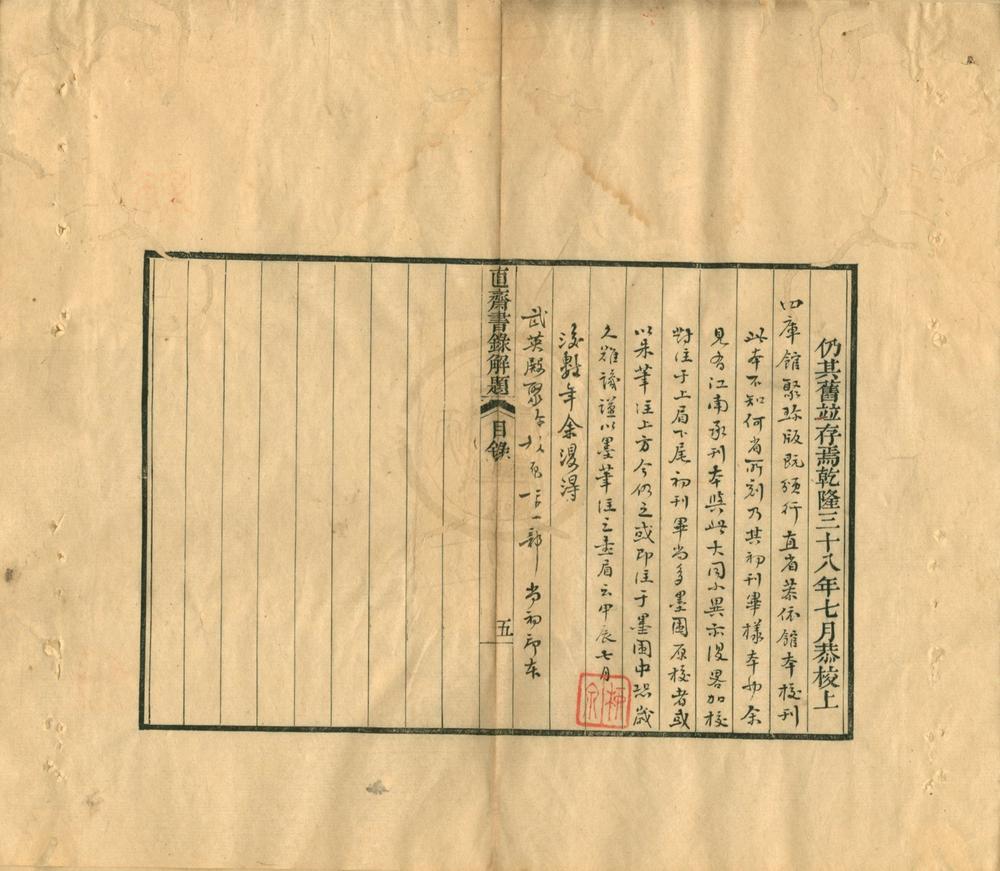 仍其舊並存焉乾隆三十八年七月恭校上
四庫館聚珍版既頒行直省恭依館本校刊
此本不知何省所刻乃其初刊畢樣本也余
見有江南承刊本與此大同小異亦復畧加校
對注于上眉下尾初刊畢尚多墨圍原校者或
以朱筆注上方今仍之或即注于墨圍中恐歲
久難識謹以墨筆注之書眉云甲辰七月
後數年余復得
武英殿聚珍一部尚初印本
直齋書錄解題
目錄
五